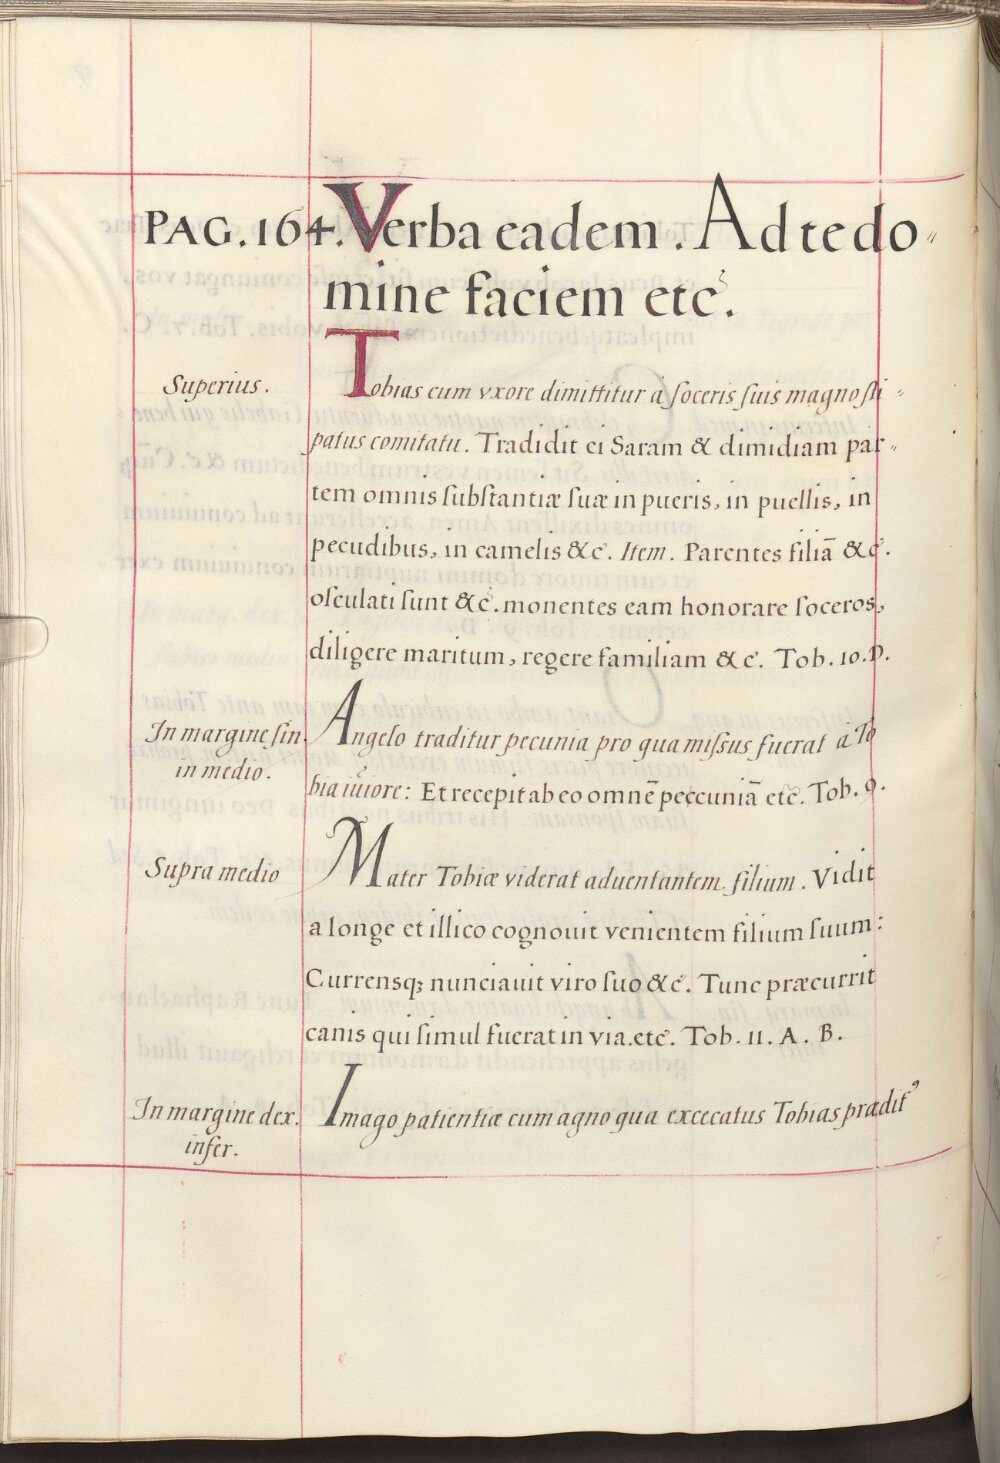 PAG. 164. Verba eadem. Ad te do„
mine faciem etc̉.
Superius. Tobias cum vxore dimittitur à ſoceris ſuis magno ſti„
patus comitatu. Tradidit ei Saram & dimidiam par„
tem omnis ſubſtantiæ ſuæ in pueris, in puellis, in
pecudibus, in camelis &c̉. Item. Parentes filiā &c̉.
oſculati ſunt &c̉. monentes eam honorare ſoceros,
diligere maritum, regere familiam &c̉. Tob. 10. D.
In margine ſin. Angelo traditur pecunia pro qua miſſus fuerat à To
in medio. bia iūiore: Et recepit ab eo omnē peccuniā etc̉. Tob. 9.
Supra medio Mater Tobiæ viderat aduentantem filium. Vidit
a longe et illico cognouit venientem filium ſuum:
Currensq; nunciauit viro ſuo &c̉. Tunc præcurrit
canis qui ſimul fuerat in via. etc̉. Tob. 11. A. B.
In margine dex. Imago patientiæ cum agno qua excecatus Tobias prædit⁹
infer.